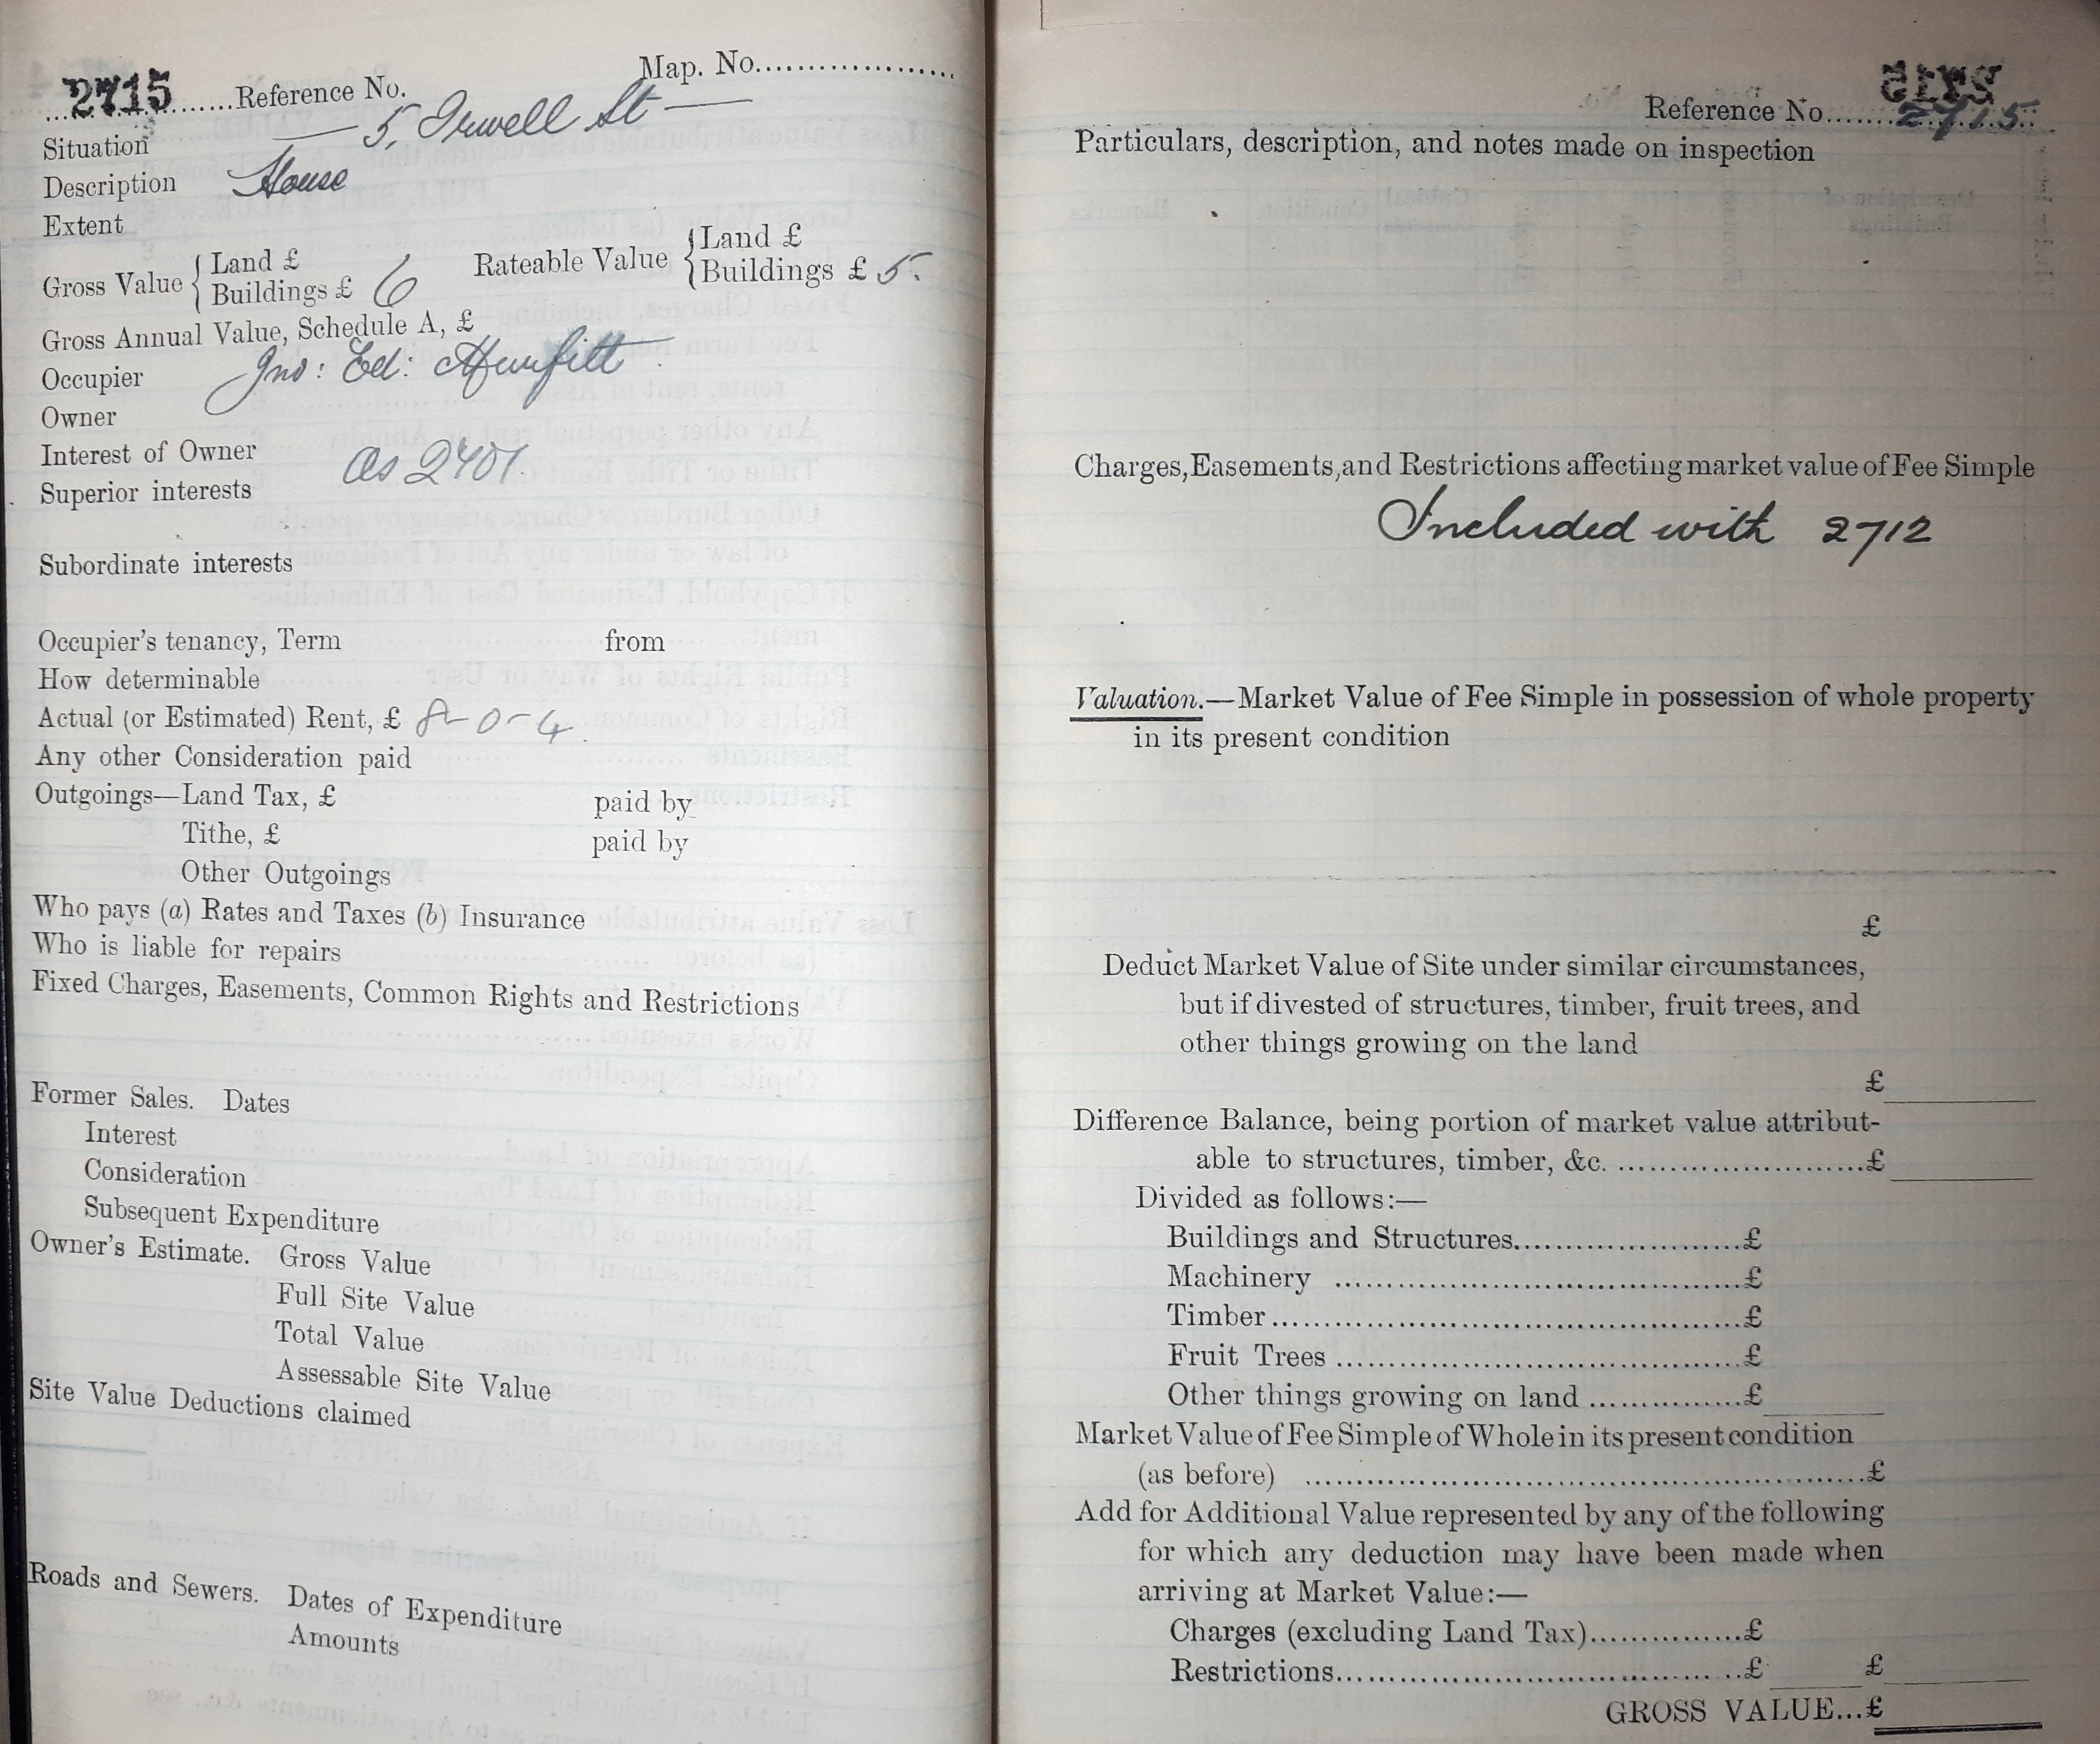 Map. No....................
2715.......Reference No.
Situation — 5, Irwell St —
Description House
Extent
Gross Value { Land £
Buildings £ 6
Rateable Value { Land £
Buildings £ 5.
Gross Annual Value, Schedule A, £
Occupier Jno: Ed:
Owner
Interest of Owner as 2701.
Superior interests
Subordinate interests
Occupier's tenancy, Term from
How determinable
Actual (or Estimated) Rent, £ 8-0-4.
Any other Consideration paid
Outgoings—Land Tax, £ paid by
Tithe, £ paid by
Other Outgoings
Who pays (a) Rates and Taxes (b) Insurance
Who is liable for repairs
Fixed Charges, Easements, Common Rights and Restrictions
Former Sales. Dates
Interest
Consideration
Subsequent Expenditure
Owner's Estimate. Gross Value
Full Site Value
Total Value
Assessable Site Value
Site Value Deductions claimed
Roads and Sewers. Dates of Expenditure
Amounts
Reference No.......2715
Particulars, description, and notes made on inspection
Charges, Easements, and Restrictions affecting market value of Fee Simple
Included with 2712
Valuation.—Market Value of Fee Simple in possession of whole property
in its present condition
£
Deduct Market Value of Site under similar circumstances,
but if divested of structures, timber, fruit trees, and
other things growing on the land
£
Difference Balance, being portion of market value attribut-
able to structures, timber, &c. ..........................£
Divided as follows:—
Buildings and Structures.....................£
Machinery .......................................£
Timber.............................................£
Fruit Trees .......................................£
Other things growing on land ...............£
Market Value of Fee Simple of Whole in its present condition
(as before) .....................................................£
Add for Additional Value represented by any of the following
for which any deduction may have been made when
arriving at Market Value:—
Charges (excluding Land Tax)...............£
Restrictions.......................................£ £
GROSS VALUE...£